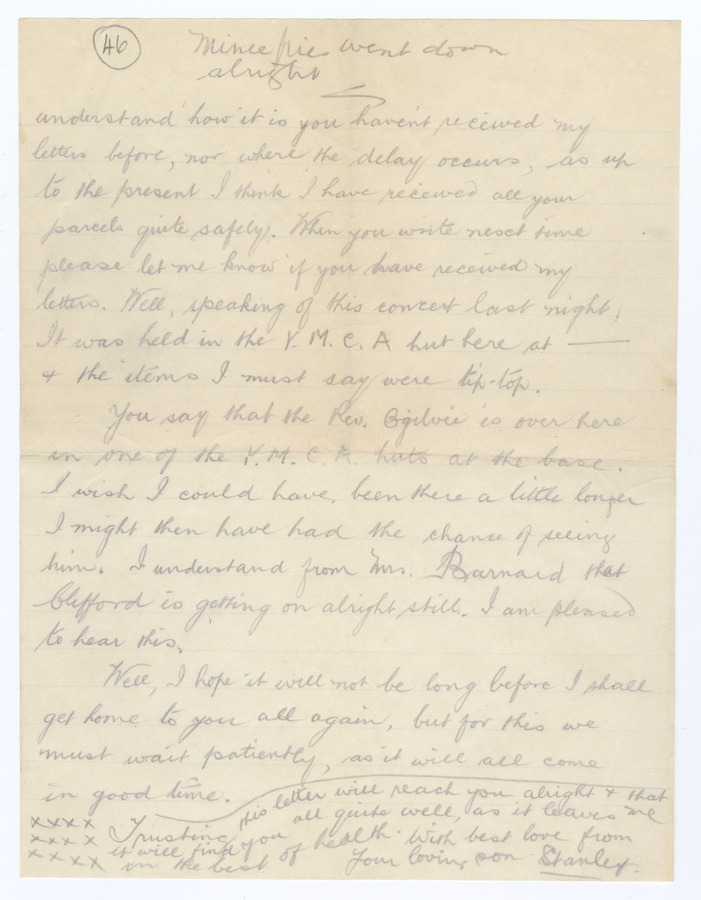 46
Mince pies went down
alright
understand how it is you haven't received my
letters before, nor where the delay occurs, as up
to the present I think I have received all your
parcels quite safely. When you write next time
please let me know if you have received my
letters. Well, speaking of this concert last night,
It was held in the Y. M. C. A hut here at —
& the items I must say were tip-top.
You say that the Rev. Ogilvie is over here
in one of the Y. M. C. A. huts at the base.
I wish I could have been there a little longer
I might then have had the chance of seeing
him. I understand from Mrs. Barnard that
Clifford is getting on alright still. I am pleased
to hear this.
Well, I hope it will not be long before I shall
get home to you all again, but for this we
must wait patiently, as it will all come
in good time.
Trusting this letter will reach you alright & that
it will find you all quite well, as it leaves me
in the best of health. With best love from
Your loving son Stanley.
xxxx
xxxx
xxxx